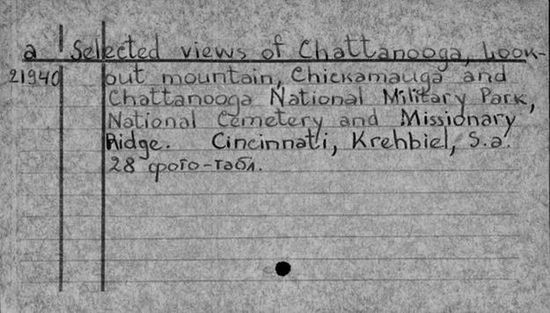 a Selected views of Chattanooga, Look-
21940 out mountain, Chickamauga and
Chattanooga National Military Park,
National Cemetery and Missionary
Ridge. Cincinnati, Krehbiel, S.a.
28 фото-табл.